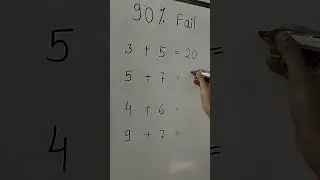 90% Fail
3 + 5 = 20
5 + 7 =
4 + 6 =
9 + 7 =